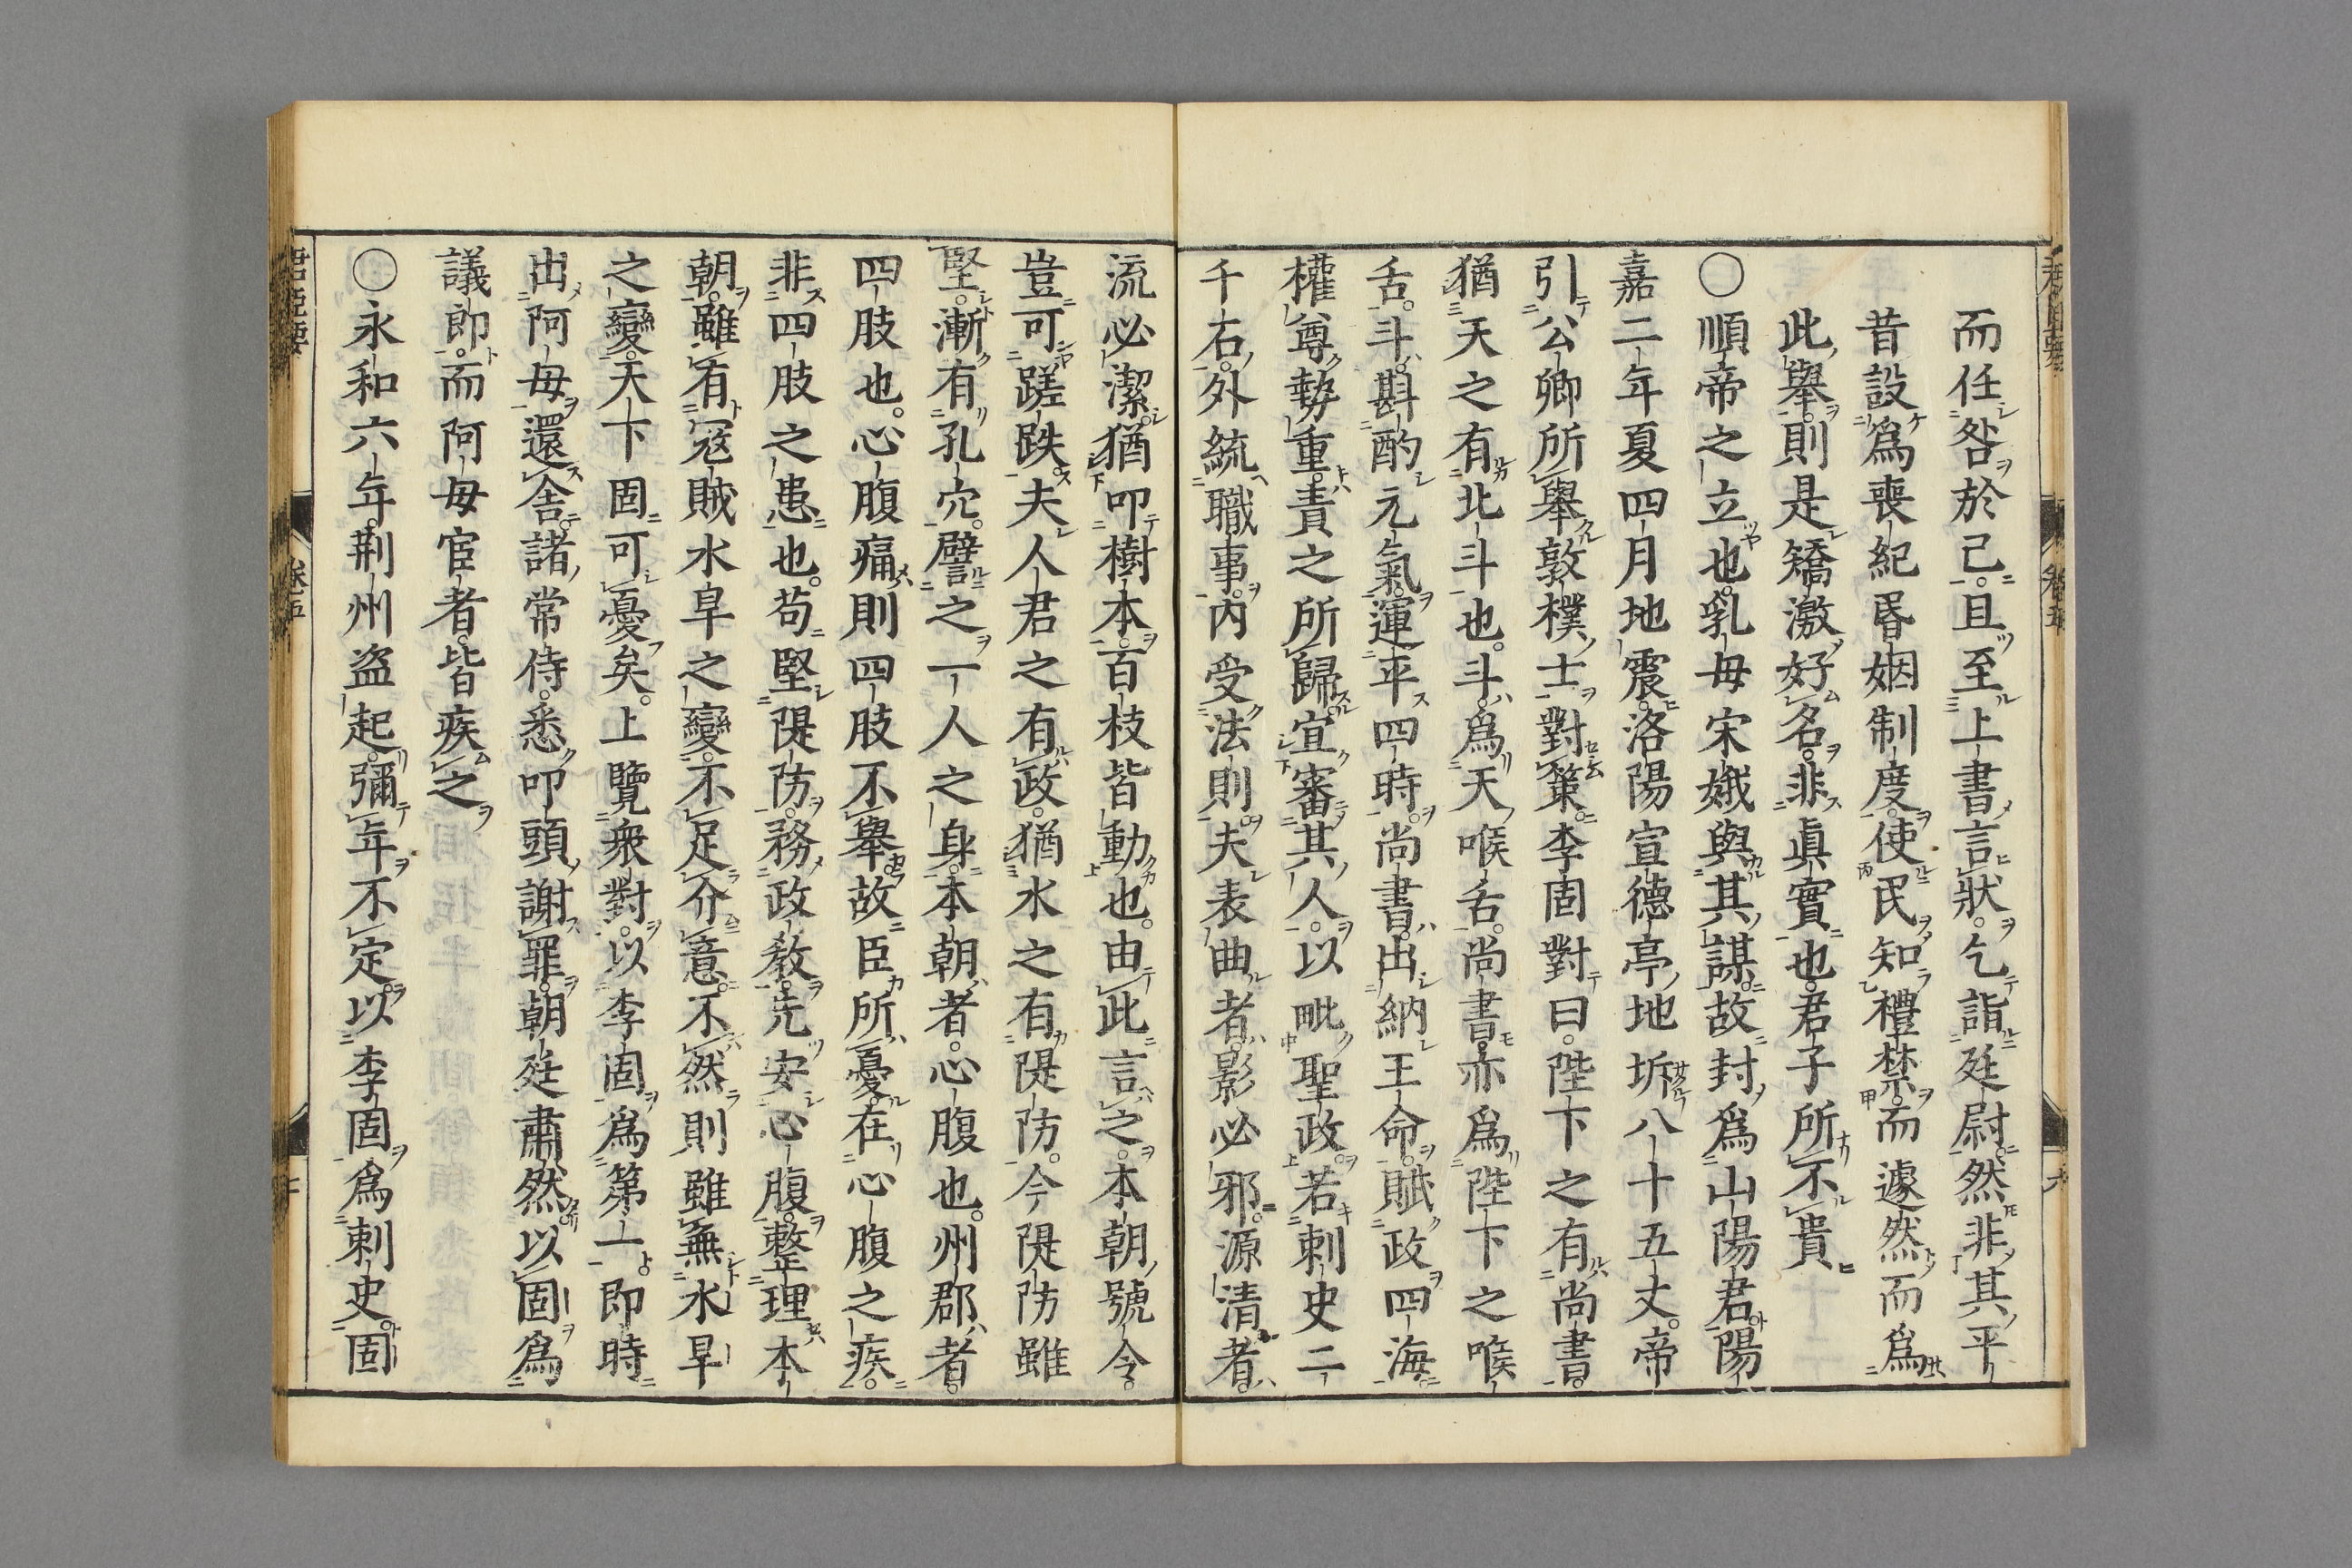 而任咎於己。且至上書言狀。乞詣廷尉。然非其平
昔設爲喪紀昏姻制度。使民知禮禁。而遽然而爲
此舉。則是矯激好名。非眞實也。君子所不貴
○順帝之立也。乳母宋娥與其謀。故封爲山陽君。陽
嘉二年夏四月地震。洛陽宣德亭地坼八十五丈。帝
引公卿所舉敦樸士對策。李固對曰。陛下之有尚書。
猶天之有北斗也。斗爲天喉舌。尚書亦爲陛下之喉
舌。斗斟酌元氣。運平四時。尚書出納王命。賦政四海。
權尊勢重。責之所歸。宜審其人。以毗聖政。若刺史二
千石。外統職事。内受法則。夫表曲者。影必邪。源清者。
流必潔。猶叩樹本。百枝皆動也。由此言之。本朝號令。
豈可蹉跌。夫人君之有政。猶水之有隄防。今隄防雖
堅。漸有孔穴。譬之一人之身。本朝者。心腹也。州郡者。
四肢也。心腹痛則四肢不舉。故臣所憂。在心腹之疾。
非四肢之患也。苟堅隄防。務政教。先安心腹。整理本
朝。雖有寇賊水旱之變。不足介意。不然則雖無水旱
之變。天下固可憂矣。上覽衆對。以李固爲第一。即時
出阿母還舍。諸常侍。悉叩頭謝罪。朝廷肅然。以固爲
議郎。而阿母宦者。皆疾之
○永和六年。荆州盗起。彌年不定。以李固爲刺史。固